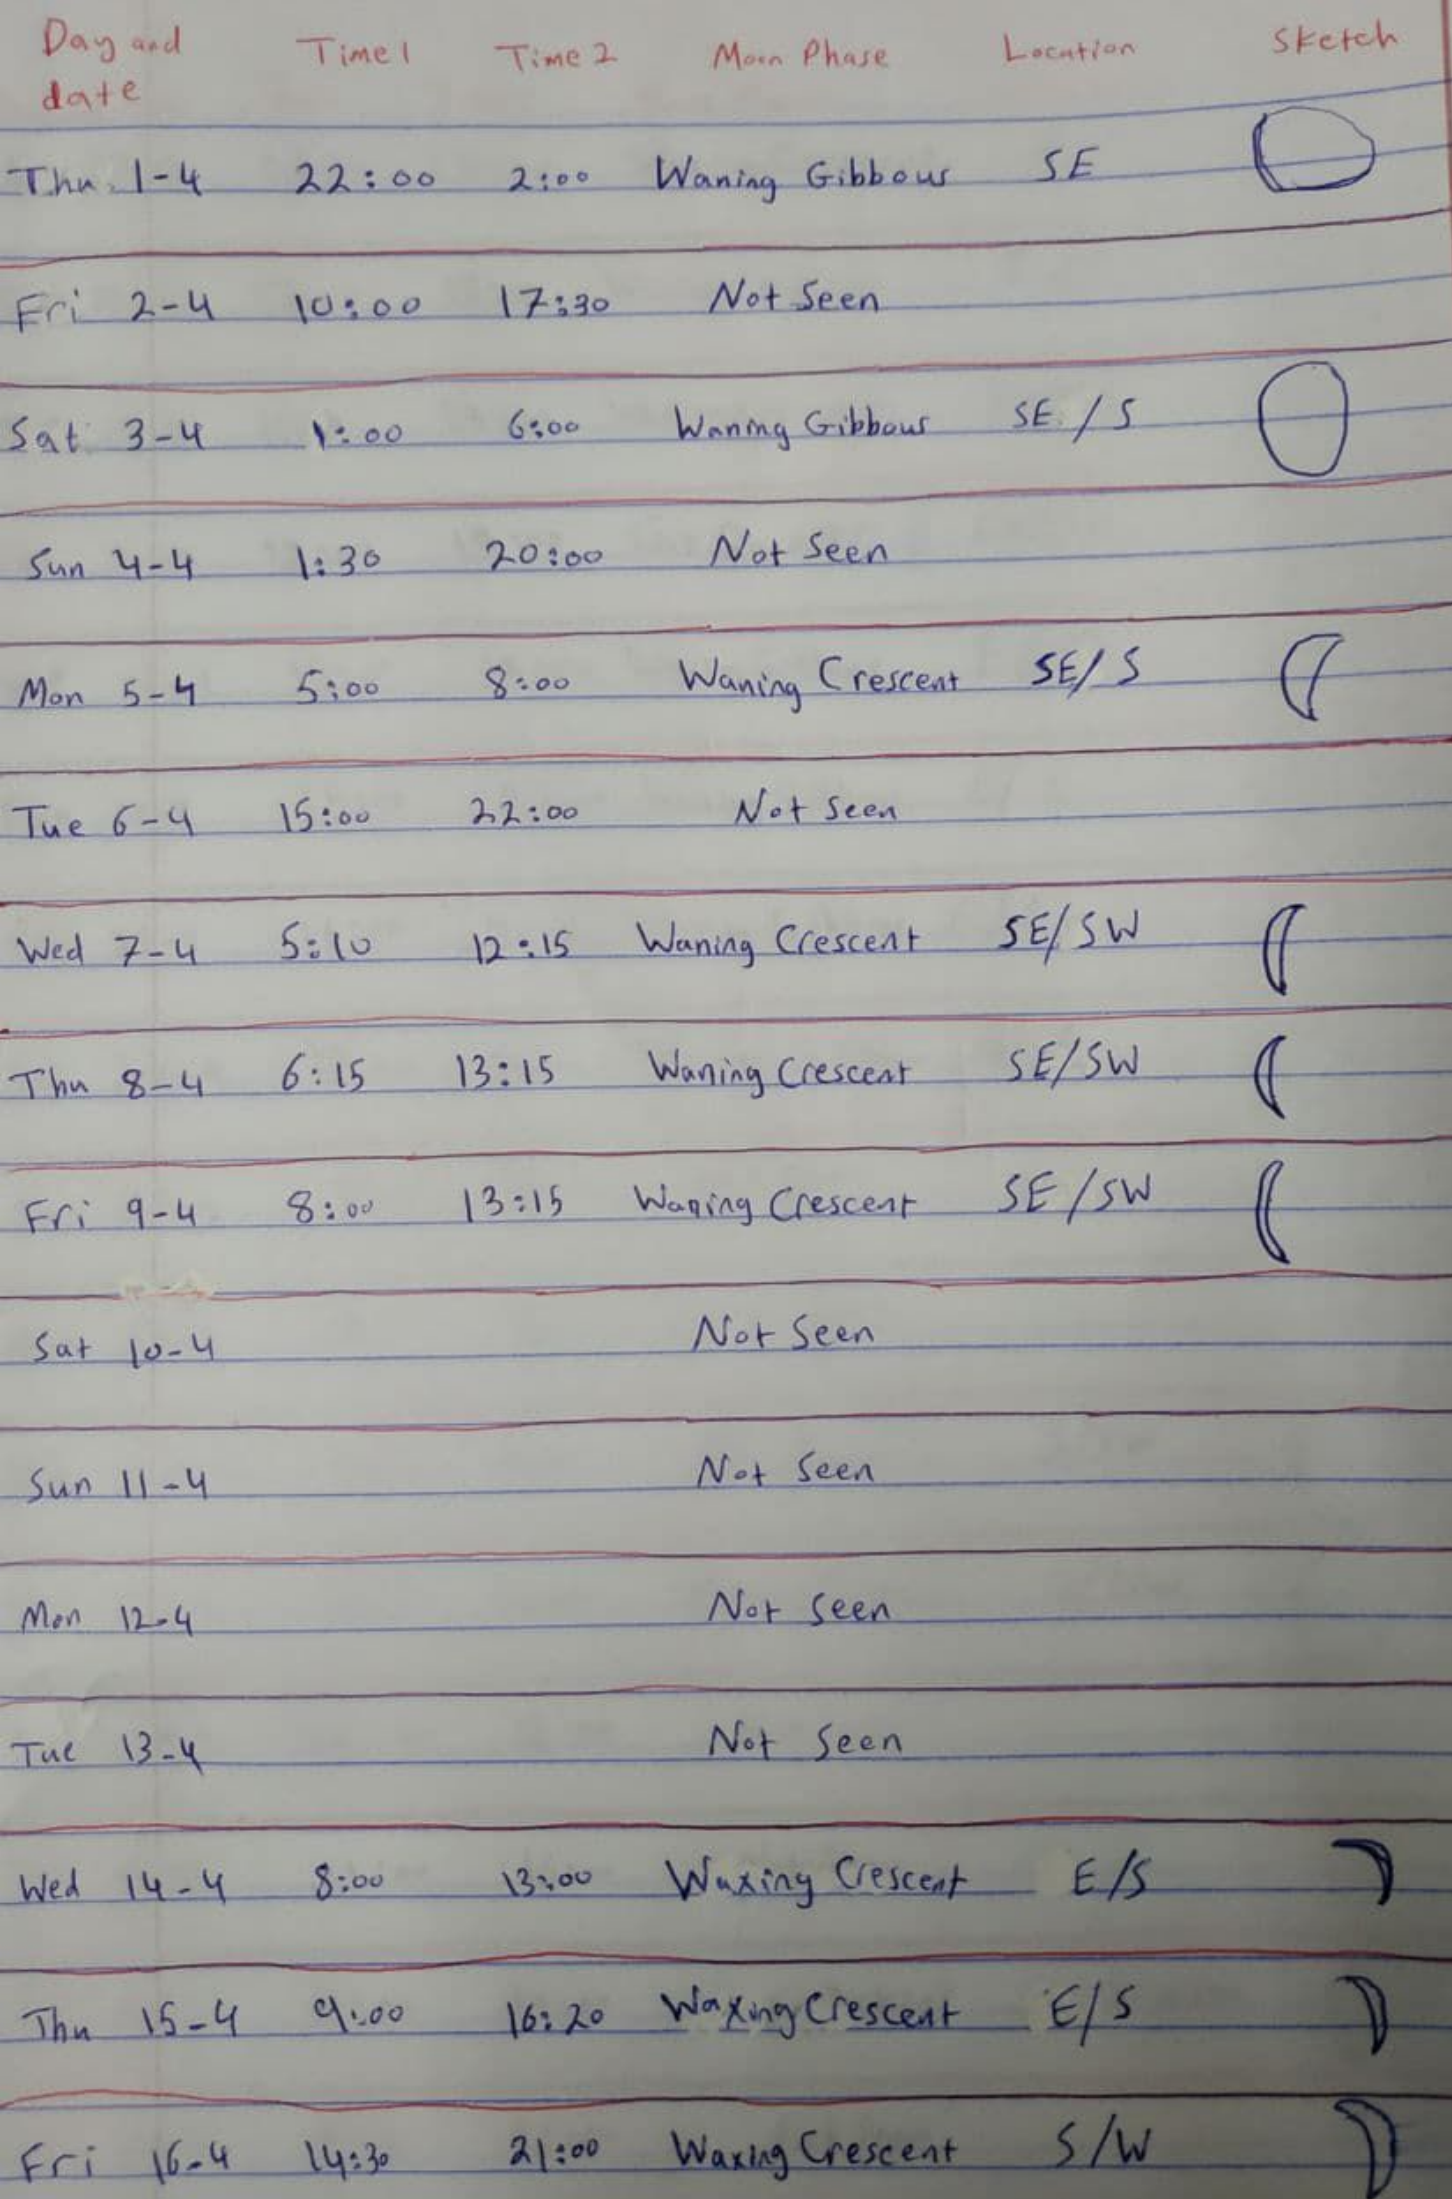 Day and date Time 1 Time 2 Moon Phase Location Sketch
Thu 1-4 22:00 2:00 Waning Gibbous SE
Fri 2-4 10:00 17:30 Not Seen
Sat 3-4 1:00 6:00 Waning Gibbous SE / S
Sun 4-4 1:30 20:00 Not Seen
Mon 5-4 5:00 8:00 Waning Crescent SE/S
Tue 6-4 15:00 22:00 Not Seen
Wed 7-4 5:10 12:15 Waning Crescent SE/SW
Thu 8-4 6:15 13:15 Waning Crescent SE/SW
Fri 9-4 8:00 13:15 Waning Crescent SE/SW
Sat 10-4 Not Seen
Sun 11-4 Not Seen
Mon 12-4 Not Seen
Tue 13-4 Not Seen
Wed 14-4 8:00 13:00 Waxing Crescent E/S
Thu 15-4 9:00 16:20 Waxing Crescent E/S
Fri 16-4 14:30 21:00 Waxing Crescent S/W